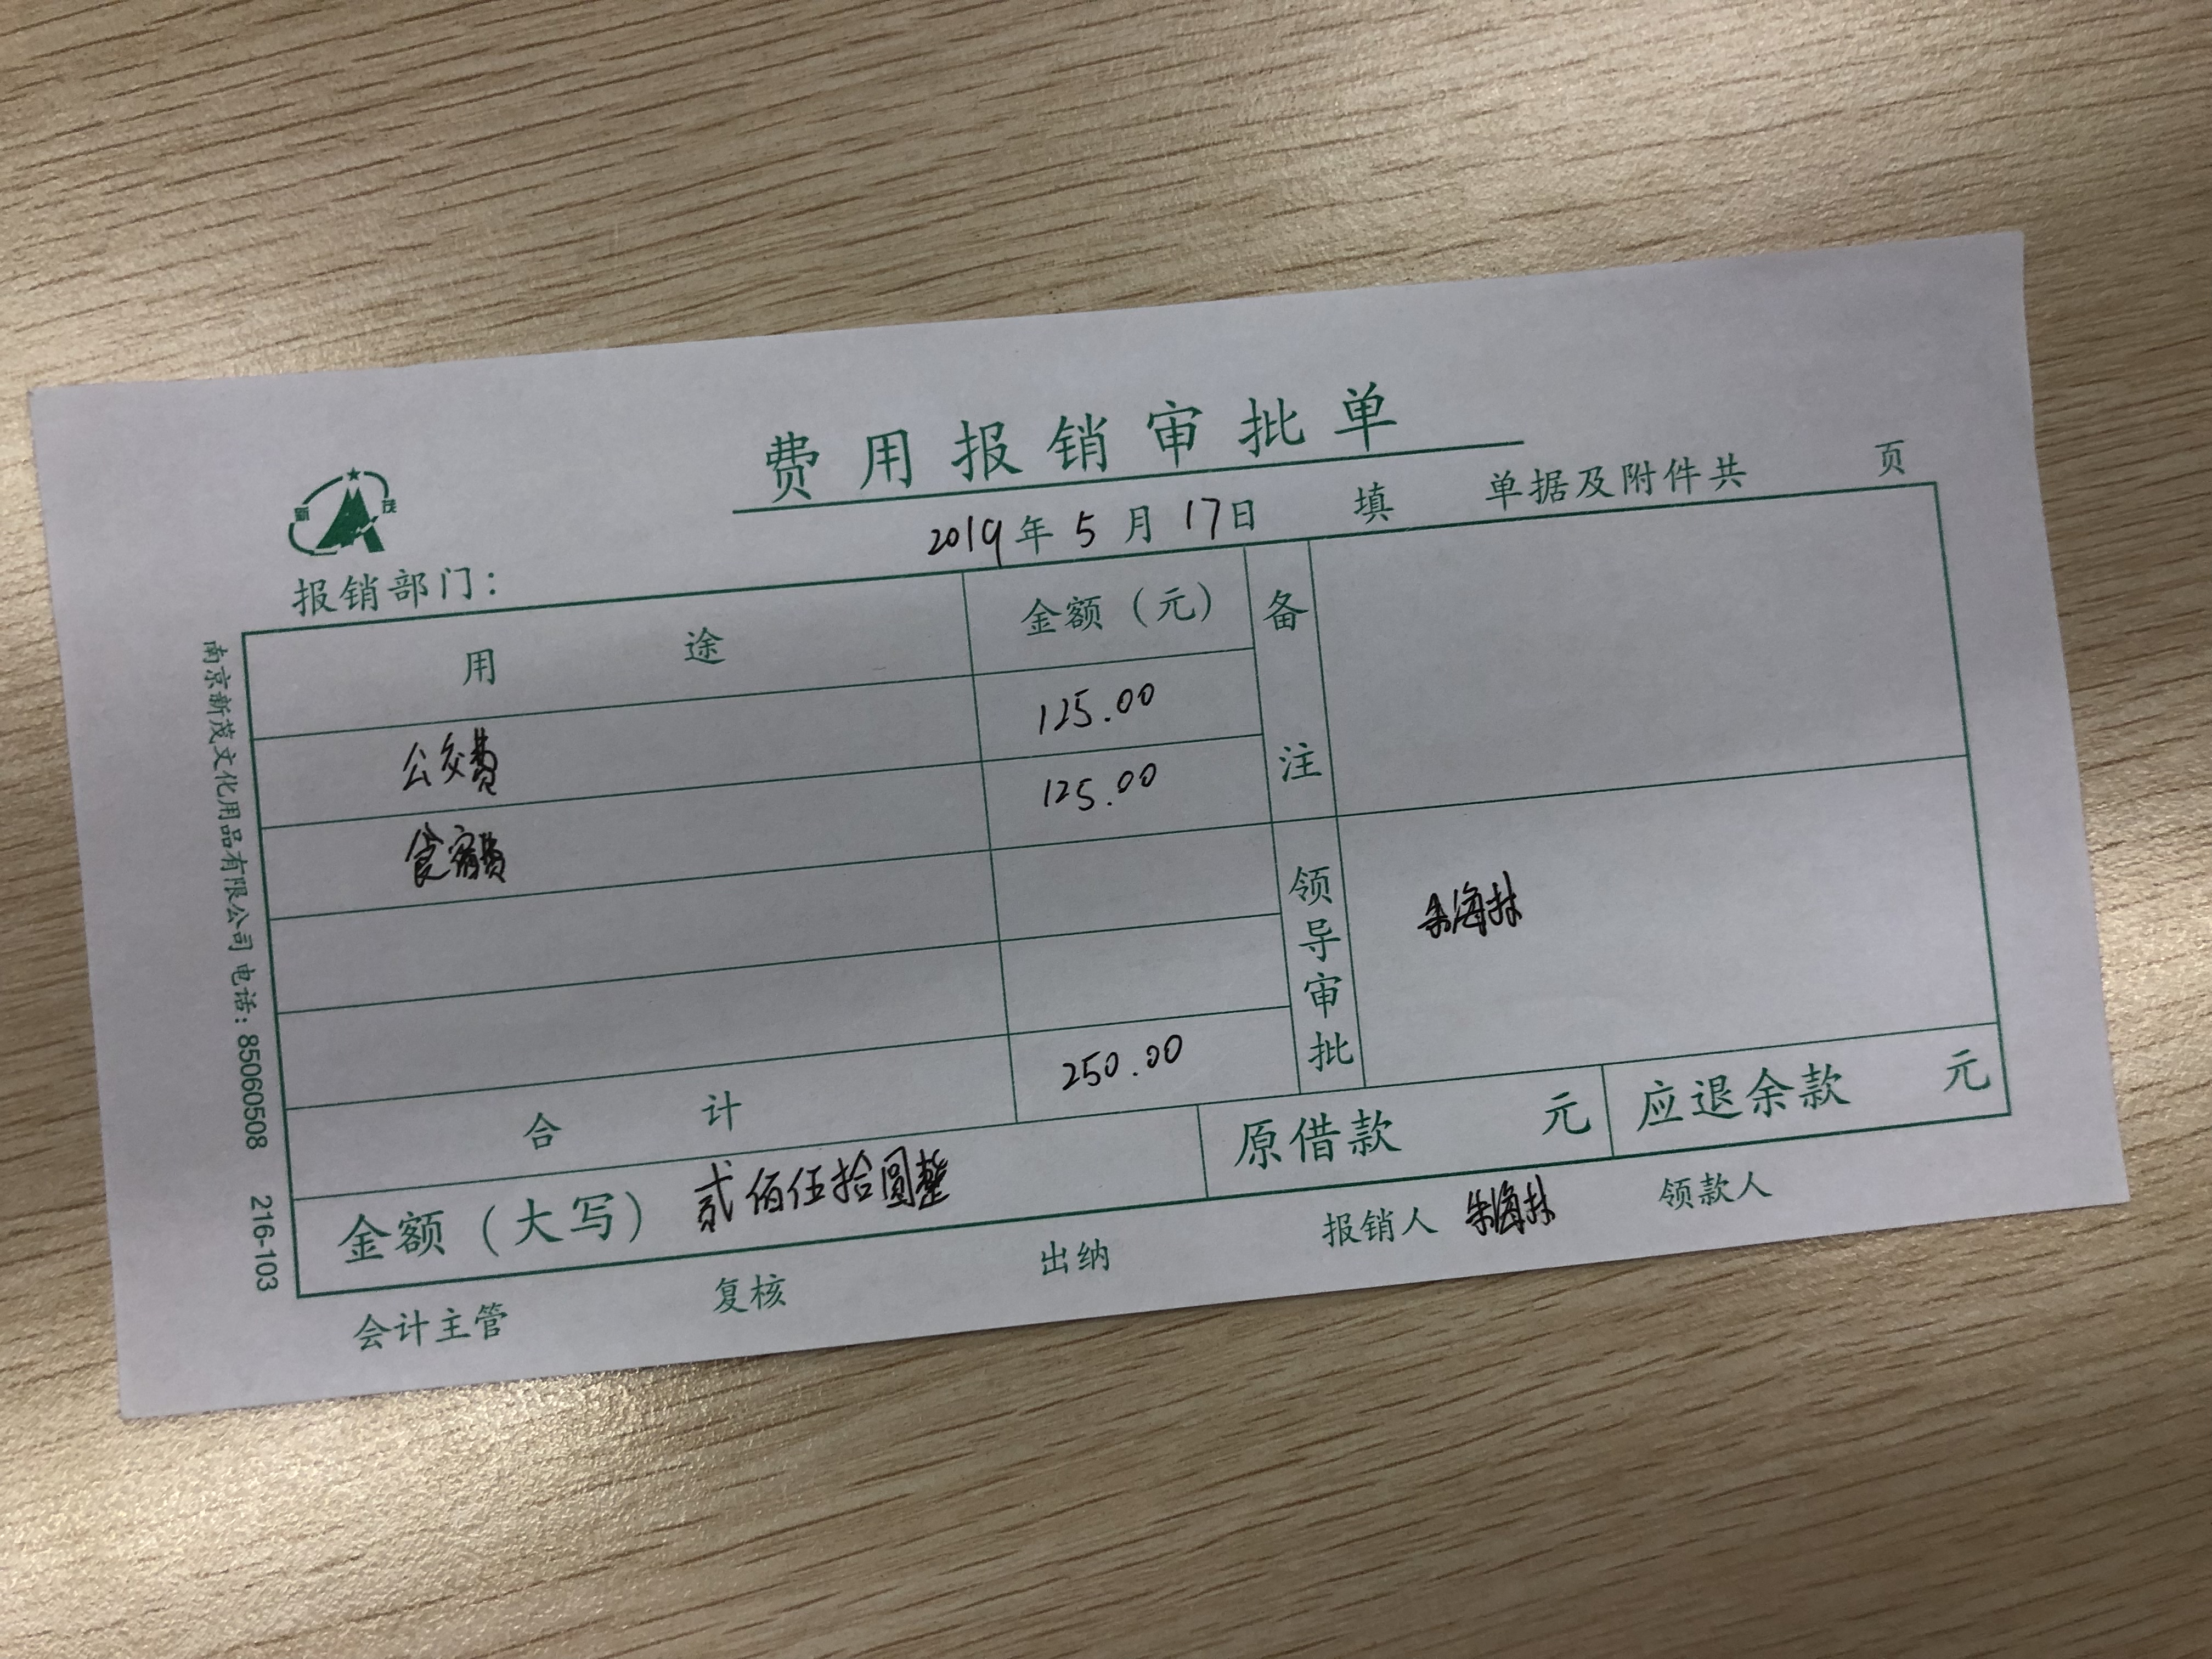 费用报销审批单
报销部门： 2019年5月17日 填 单据及附件共 页
用途 金额（元） 备注
公交费 125.00
125.00
领导审批
合计 250.00
金额（大写） 贰佰伍拾圆整 原借款 元 应退余款 元
会计主管 复核 出纳 报销人 领款人
南京新茂文化用品有限公司 电话：85060508 216-103